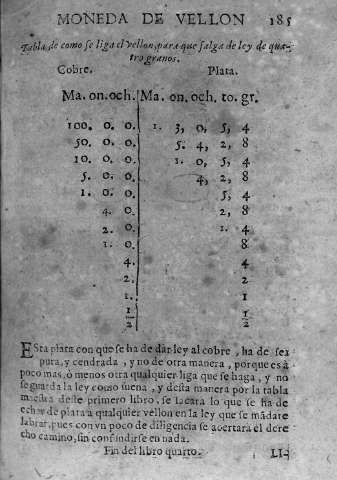 MONEDA DE VELLON 185
Tabla de como se liga el vellon, para que salga de ley de qua-
tro granos.
Cobre. Plata.
Ma. on. och. Ma. on. och. to. gr.
100. 0. 0. 1. 3, 0, 5, 4
50. 0. 0. 5. 4, 2, 8
10. 0. 0. 1. 0, 5, 4
5. 0. 0. 4, 2, 8
1. 0. 0. 5, 4
4. 0. 2, 8
2. 0. 1. 4
1. 0. 8
4. 4
2. 2
1. 1
1/2 1/2
ESta plata con que se ha de dar ley al cobre, ha de ser
pura, y cendrada, y no de otra manera, porque es a
poco mas, ò menos otra qualquier liga que se haga, y no
se guarda la ley como suena, y desta manera por la tabla
maestra deste primero libro, se sacara lo que se ha de
echar de plata a qualquier vellon en la ley que se mãdare
labrar, pues con vn poco de diligencia se acertara el dere
cho camino, sin confundirse en nada.
Fin del libro quarto. LI-